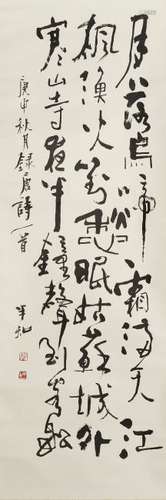 月落烏啼霜滿天江
楓漁火對愁眠姑蘇城外
寒山寺夜半鐘聲到客船
庚申秋月錄唐詩一首